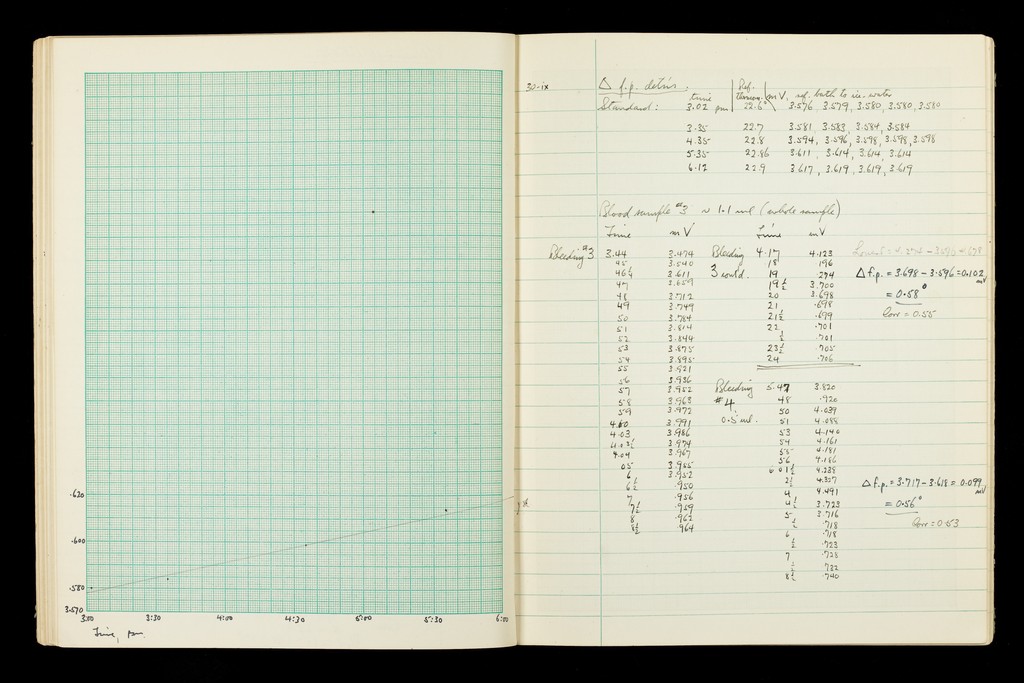 .620
.600
.580
3.570
3:00 3:30 4:00 4:30 5:00 5:30 6:00
Time, pm
30-ix
Δ f.p. det'ns.
time | Ref. | mV, ref. bath to ice-water
Standard: 3.02 pm 22.6° 3.576, 3.579, 3.580, 3.580, 3.580
3.35 22.7 3.581, 3.583, 3.584, 3.584
4.35 22.8 3.594, 3.596, 3.598, 3.598, 3.598
5.35 22.86 3.611, 3.614, 3.614, 3.614
6.12 22.9 3.617, 3.619, 3.619, 3.619
Blood sample #3 ~ 1.1 ml (whole sample)
Time mV
Bleeding #3 3.44 3.474
45 3.540
46½ 3.611
47 3.659
48 3.712
49 3.749
50 3.784
51 3.814
52 3.844
53 3.875
54 3.895
55 3.921
56 3.936
57 3.952
58 3.963
59 3.972
4.00 3.991
4.03 3.986
3.974
4.04 3.967
05 3.955
6 3.952
6½ .950
7 .956
7½ .959
8 .962
8½ .964
Time mV
Bleeding 3 contd. 4.17 4.123
18 .196
19 .274
19½ 3.700
20 3.698
21 .698
21½ .699
22 .701
½ .701
23½ .705
24 .706
Δ f.p. = 3.698 - 3.596 = 0.102 mV
= 0.58°
Corr = 0.55
Bleeding #4 0.5 ml. 5.47 3.820
48 .920
50 4.039
51 4.088
53 4.140
54 4.161
55 4.181
56 4.186
6 01½ 4.238
2½ 4.357
4 4.491
4½ 3.723
5 3.716
½ .718
6 .718
½ .723
7 .728
½ .732
8½ .740
Δ f.p. = 3.717 - 3.618 = 0.099 mV
= 0.56°
Corr = 0.53